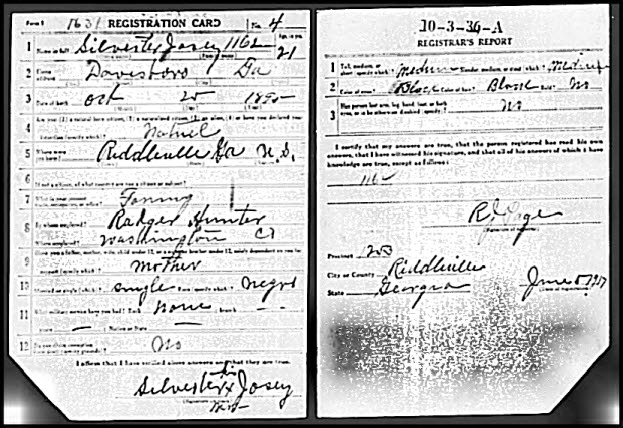 Form 1 1631 REGISTRATION CARD No. 4
1 Name in full Silvester Josey 1162 Age, in yrs. 21
2 Home address Davisboro Ga
3 Date of birth Oct 25 1895
4 Are you (1) a natural born citizen, (2) a naturalized citizen, (3) an alien, (4) or have you declared your intention (specify which)?
5 Where were you born? Riddleville Ga U.S.
6 If not a citizen, of what country are you a citizen or subject?
7 What is your present trade, occupation, or office? Farming
8 By whom employed? Hunter
Where employed? Washington Co
9 Have you a father, mother, wife, child under 12, or a sister or brother under 12, solely dependent on you for support (specify which)?
Mother
10 Married or single (which)? Single Race (specify which)? Negro
11 What military service have you had? Rank None branch —
years — Nation or State —
12 Do you claim exemption from draft (specify grounds)? No
I affirm that I have verified above answers and that they are true.
his
Silvester x Josey
mark
10-3-36-A
REGISTRAR'S REPORT
1 Tall, medium, or short (specify which)? Medium Slender, medium, or stout (which)? Medium
2 Color of eyes? Black Color of hair? Black Bald? No
3 Has person lost arm, leg, hand, foot, or both eyes, or is he otherwise disabled (specify)?
No
I certify that my answers are true, that the person registered has read his own answers, that I have witnessed his signature, and that all of his answers of which I have knowledge are true, except as follows:
1162
R. J. Page
(Signature of registrar)
Precinct
City or County Riddleville
State Georgia June 5 1917
(Date of registration)